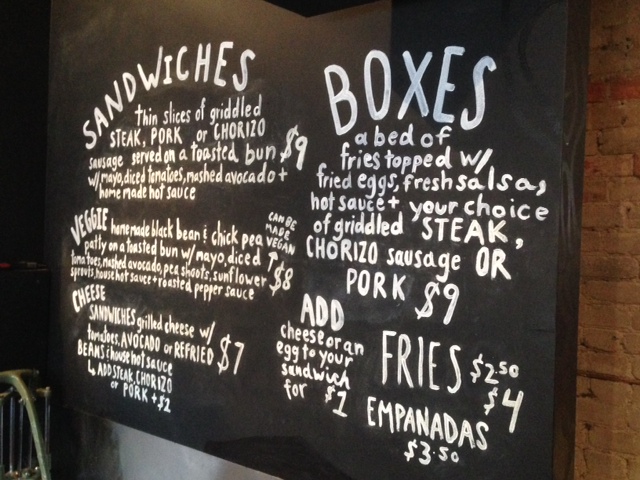 SANDWICHES
thin slices of griddled
STEAK, PORK or CHORIZO
sausage served on a toasted bun $9
w/ mayo, diced tomatoes, mashed avocado +
home made hot sauce
VEGGIE homemade black bean & chick pea
patty on a toasted bun w/ mayo, diced
tomatoes, mashed avocado, pea shoots, sunflower
sprouts, house hot sauce + roasted pepper sauce
$8
CAN BE
MADE
VEGAN
CHEESE
SANDWICHES grilled cheese w/
tomatoes, AVOCADO or REFRIED
BEANS & house hot sauce
$7
↳ ADD STEAK, CHORIZO
or PORK +$2
BOXES
a bed of
fries topped w/
fried eggs, fresh salsa,
hot sauce + your choice
of griddled STEAK,
CHORIZO sausage OR
PORK $9
ADD
cheese or an
egg to your
sandwich
for $1
FRIES $2.50
$4
EMPANADAS
$3.50